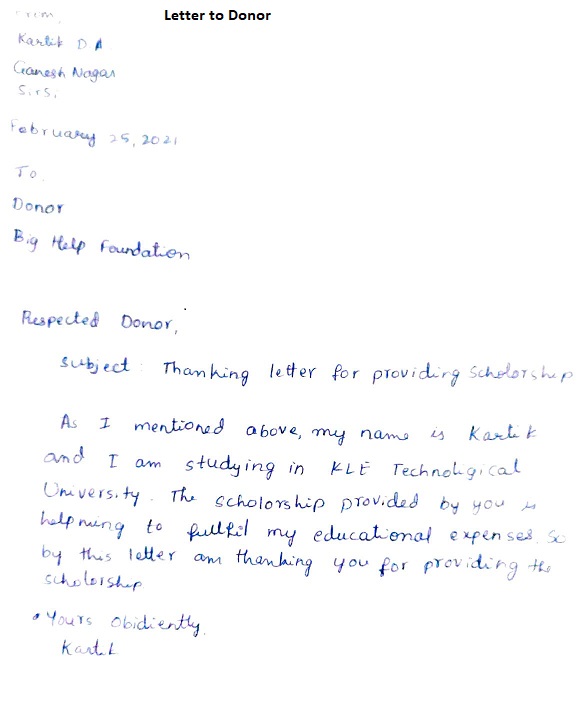 Letter to Donor
From,
Kartik D A
Ganesh Nagar
Sirsi
February 25, 2021
To
Donor
Big Help Foundation
Respected Donor,
Subject : Thanking letter for providing Scholorship
As I mentioned above, my name is Kartik
and I am studying in KLE Technoligical
University. The scholorship provided by you is
helpning to fullfil my educational expenses. So
by this letter am thanking you for providing the
scholorship
• Yours Obidiently.
Kartik